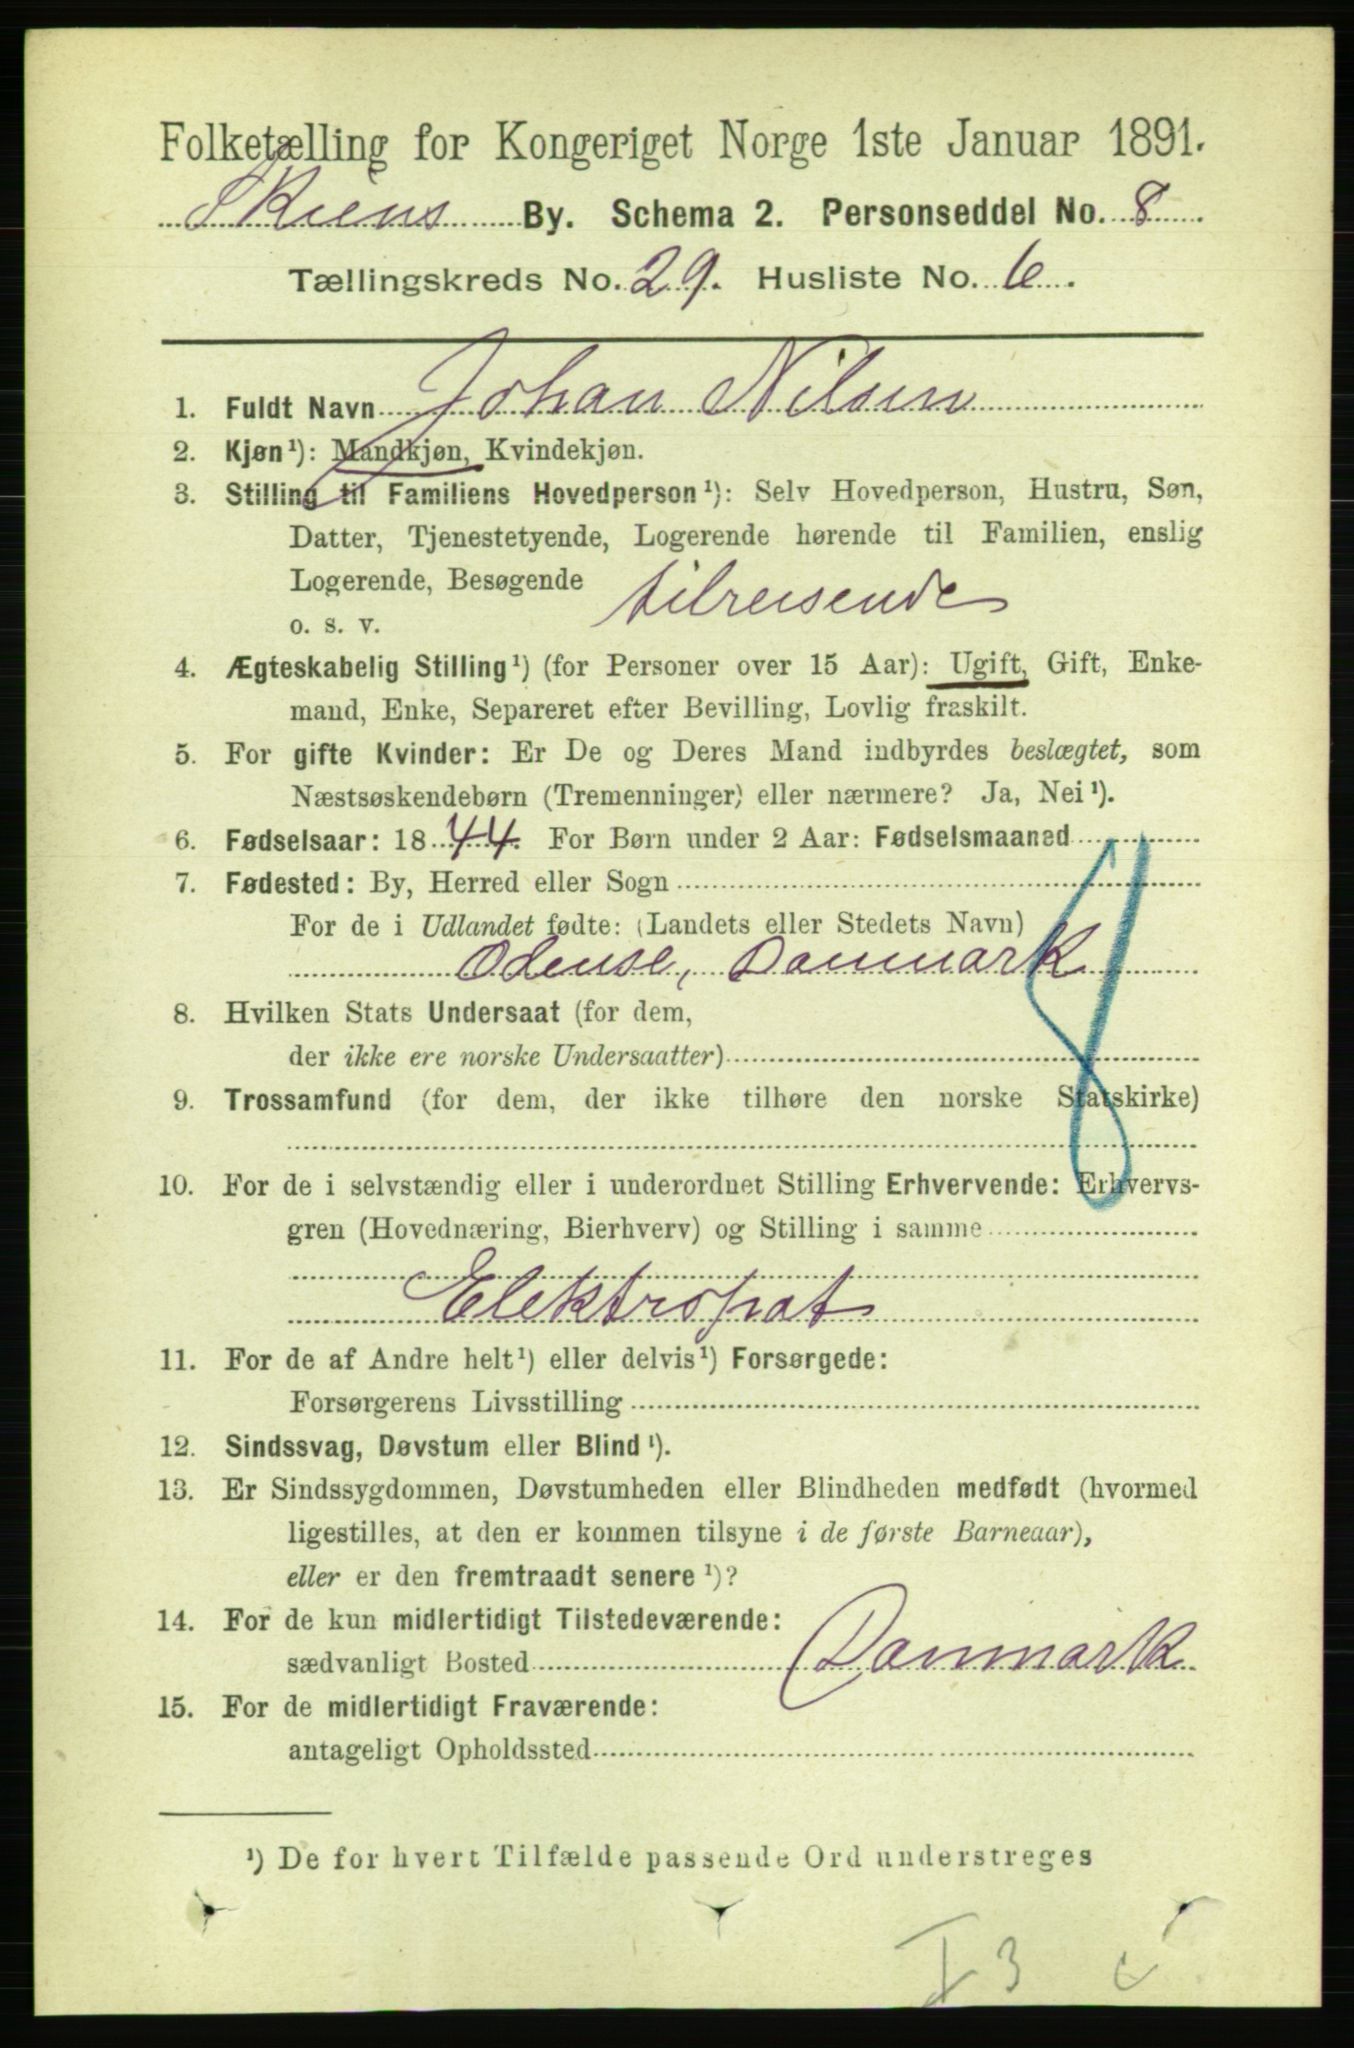 Folketælling for Kongeriget Norge 1ste Januar 1891.
Skiens By. Schema 2. Personseddel No. 8.
Tællingskreds No. 29. Husliste No. 6.
1. Fuldt Navn Johan Nilsen
2. Kjøn¹): Mandkjøn, Kvindekjøn.
3. Stilling til Familiens Hovedperson¹): Selv Hovedperson, Hustru, Søn,
Datter, Tjenestetyende, Logerende hørende til Familien, enslig
Logerende, Besøgende
o. s. v. tilreisende
4. Ægteskabelig Stilling¹) (for Personer over 15 Aar): Ugift, Gift, Enke-
mand, Enke, Separeret efter Bevilling, Lovlig fraskilt.
5. For gifte Kvinder: Er De og Deres Mand indbyrdes beslægtet, som
Næstsøskendebørn (Tremenninger) eller nærmere? Ja, Nei¹).
6. Fødselsaar: 1844. For Børn under 2 Aar: Fødselsmaaned
7. Fødested: By, Herred eller Sogn
For de i Udlandet fødte: (Landets eller Stedets Navn)
Odense, Danmark
8. Hvilken Stats Undersaat (for dem,
der ikke ere norske Undersaatter)
9. Trossamfund (for dem, der ikke tilhøre den norske Statskirke)
10. For de i selvstændig eller i underordnet Stilling Erhvervende: Erhvervs-
gren (Hovednæring, Bierhverv) og Stilling i samme
Elektropat
11. For de af Andre helt¹) eller delvis¹) Forsørgede:
Forsørgerens Livsstilling
12. Sindssvag, Døvstum eller Blind¹).
13. Er Sindssygdommen, Døvstumheden eller Blindheden medfødt (hvormed
ligestilles, at den er kommen tilsyne i de første Barneaar),
eller er den fremtraadt senere¹)?
14. For de kun midlertidigt Tilstedeværende:
sædvanligt Bosted Danmark
15. For de midlertidigt Fraværende:
antageligt Opholdssted
¹) De for hvert Tilfælde passende Ord understreges
I 3